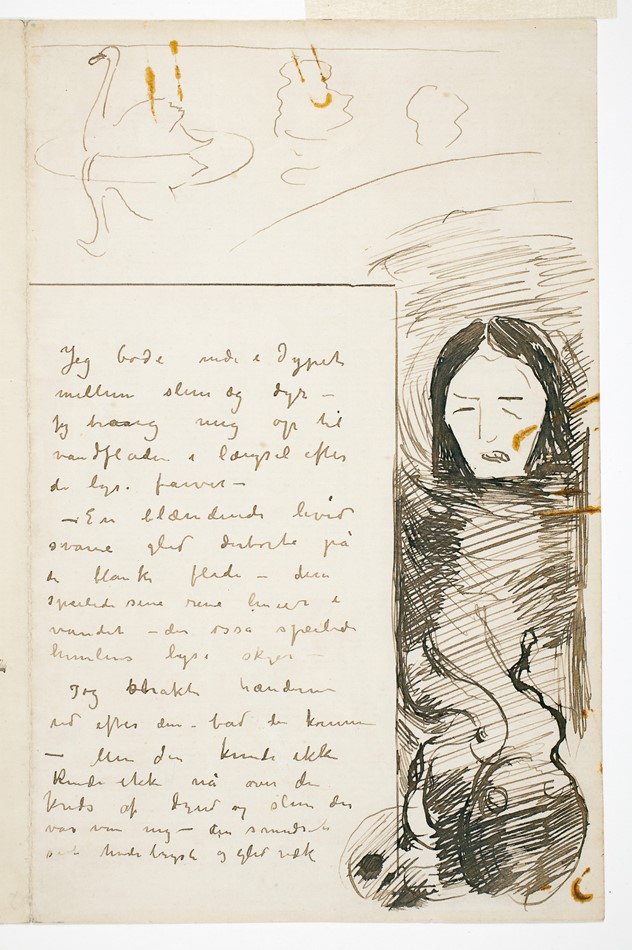 Jeg bode nede i Dypet
mellem slim og dyr —
Jeg trang mig op til
vandfladen i længsel efter
de lyse farver —
— En blændende hvid
svane gled derborte på
de blanke flade — den
speilede sine rene linier i
vandet — der også speilede
himlens lyse skyer —
Jeg strakte hænderne
ud efter den — bad den komme
— Men den kunde ikke
kunde ikke nå over den
kreds af dynd og slim der
var om mig — den smudsede
sit hvide bryst og gled væk